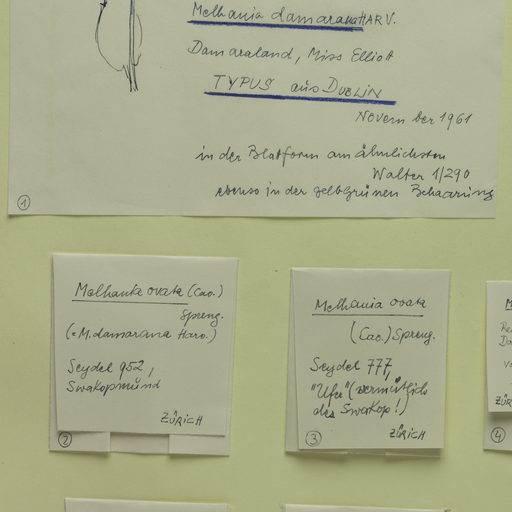 Melhania damarana HARV.
Damaraland, Miss Elliott
TYPUS aus DUBLIN
November 1961
in der Blattform am ähnlichsten
Walter 1/290
ebenso in der gelbgrünen Behaarung
1
Melhania ovata (Cav.)
Spreng.
(= M. damarana Harv.)
Seydel 952,
Swakopmund
ZÜRICH
2
Melhania ovata
(Cav.) Spreng.
Seydel 777,
"Ufer" (vermutlich
des Swakop!)
ZÜRICH
3
4